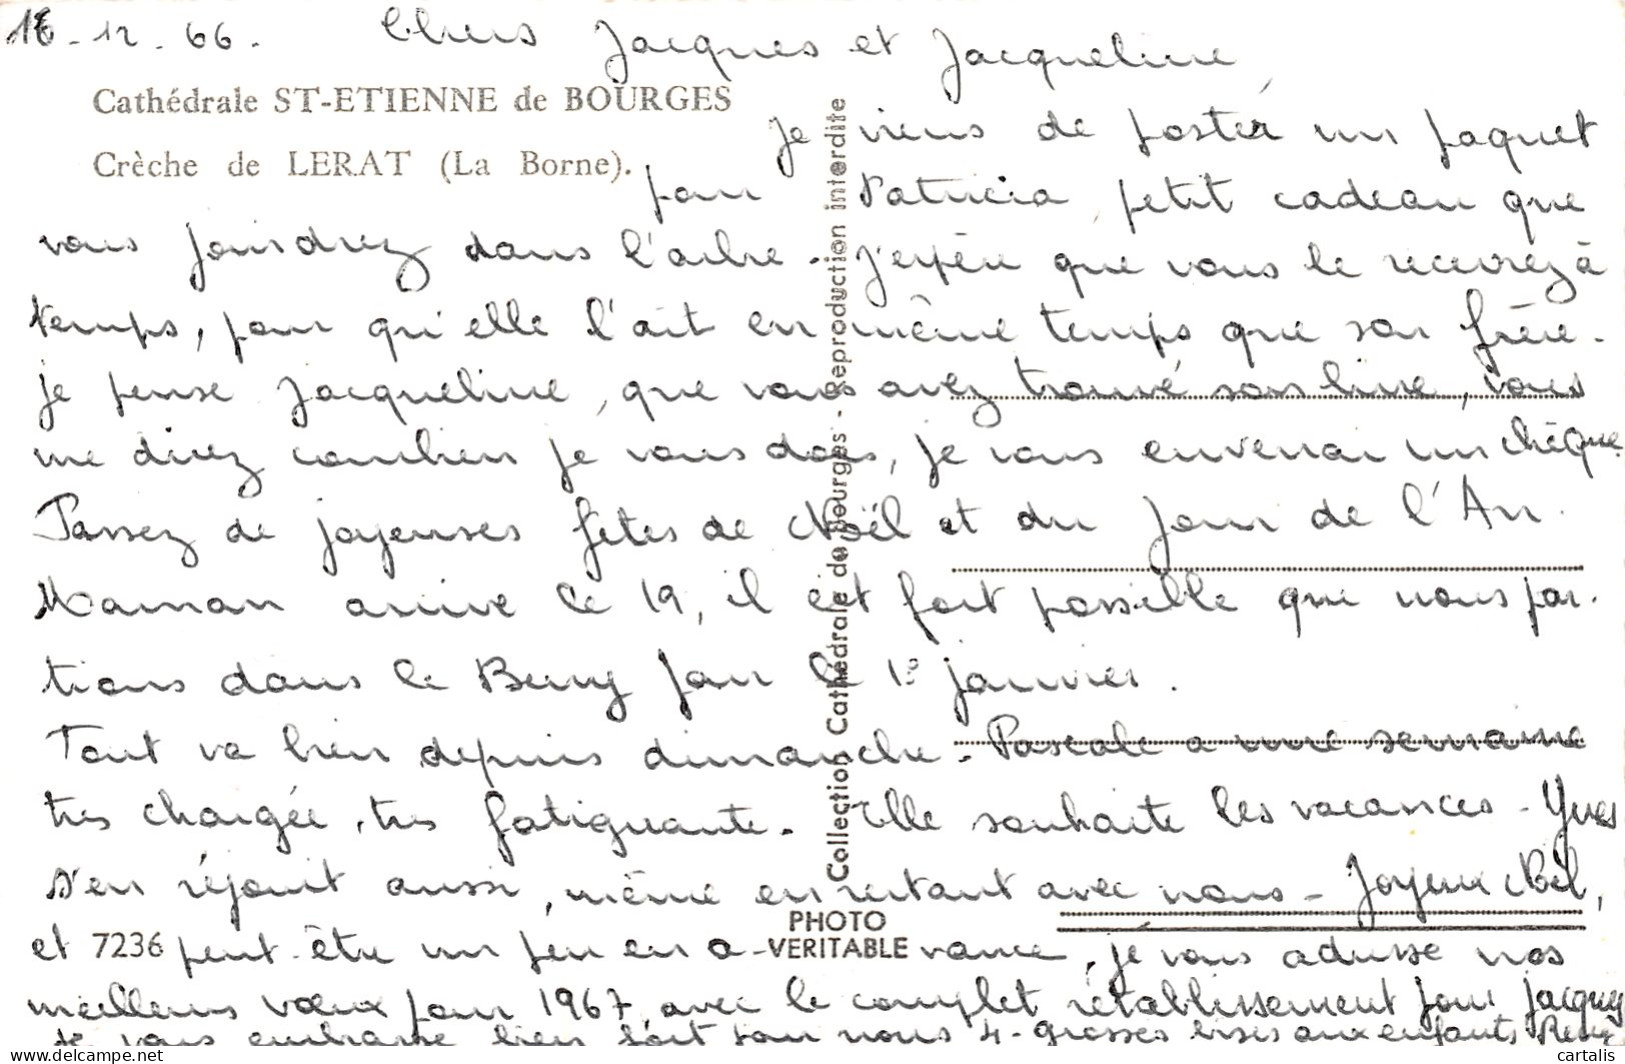 18-12-66. Chers Jacques et Jacqueline,
Cathédrale ST-ETIENNE de BOURGES
Crèche de LERAT (La Borne).
Je viens de poster un paquet
pour Patricia, petit cadeau que
vous joindrez dans l'arbre. J'espère que vous le recevrez à
temps, pour qu'elle l'ait en même temps que son frère.
Je pense Jacqueline, que vous avez trouvé son livre, vous
me direz combien je vous dois, je vous enverrai un chèque.
Passez de joyeuses fêtes de Noël et du Jour de l'An.
Maman arrive le 19, il est fort possible que nous par-
tions dans le Berry pour le 1er janvier.
Tout va bien depuis dimanche. Pascale a une semaine
très chargée, très fatiguante. Elle souhaite les vacances - Yves
s'en réjouit aussi, même en restant avec nous - Joyeux Noël,
et peut-être un peu en avance, je vous adresse nos
meilleurs vœux pour 1967, avec le complet rétablissement pour Jacques
Je vous embrasse bien fort pour nous 4 - grosses bises aux enfants
7236
PHOTO
VERITABLE
Collection Cathédrale de Bourges - Reproduction interdite
delcampe.net
cartalis